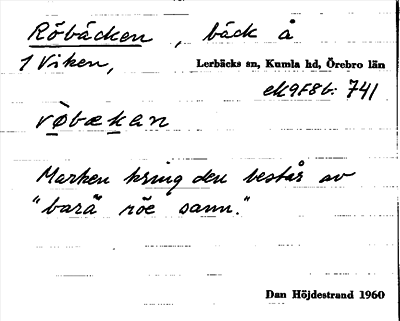 Röbäcken, bäck å
1 Viken,
Lerbäcks sn, Kumla hd, Örebro län
ek 9F8b: 741
vøbækan
Marken kring den består av
"bara röe sann."
Dan Höjdestrand 1960